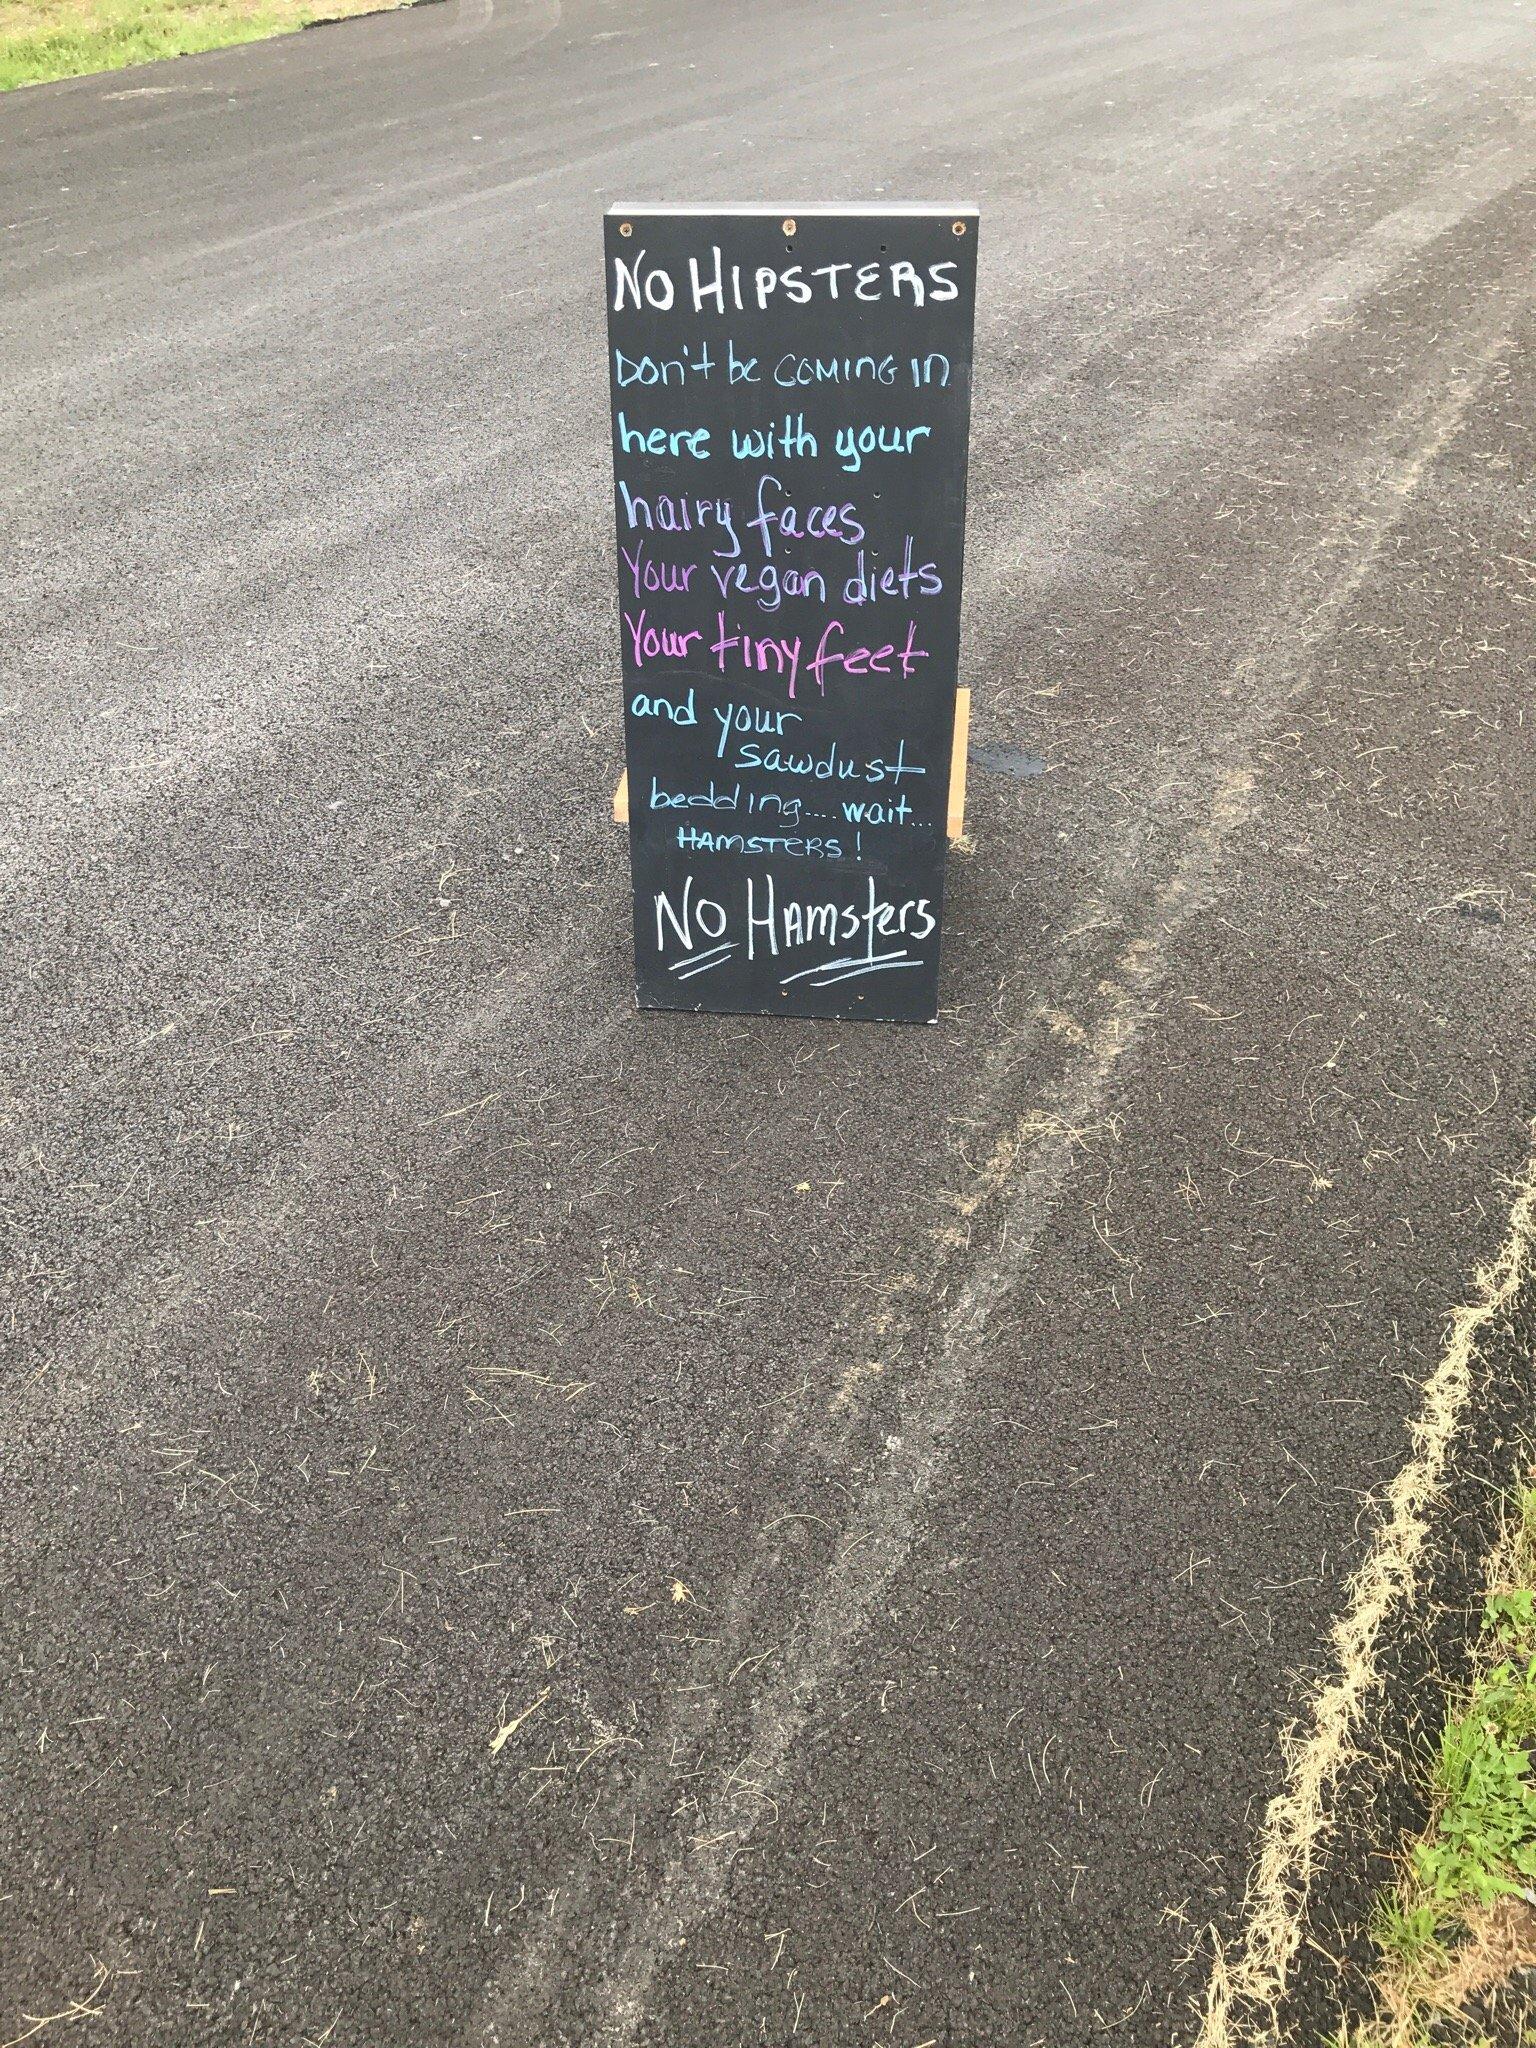 NO HIPSTERS
Don't be COMING IN
here with your
hairy faces
Your vegan diets
Your tiny feet
and your
sawdust
bedding.... wait...
HAMSTERS!
NO HAmsters